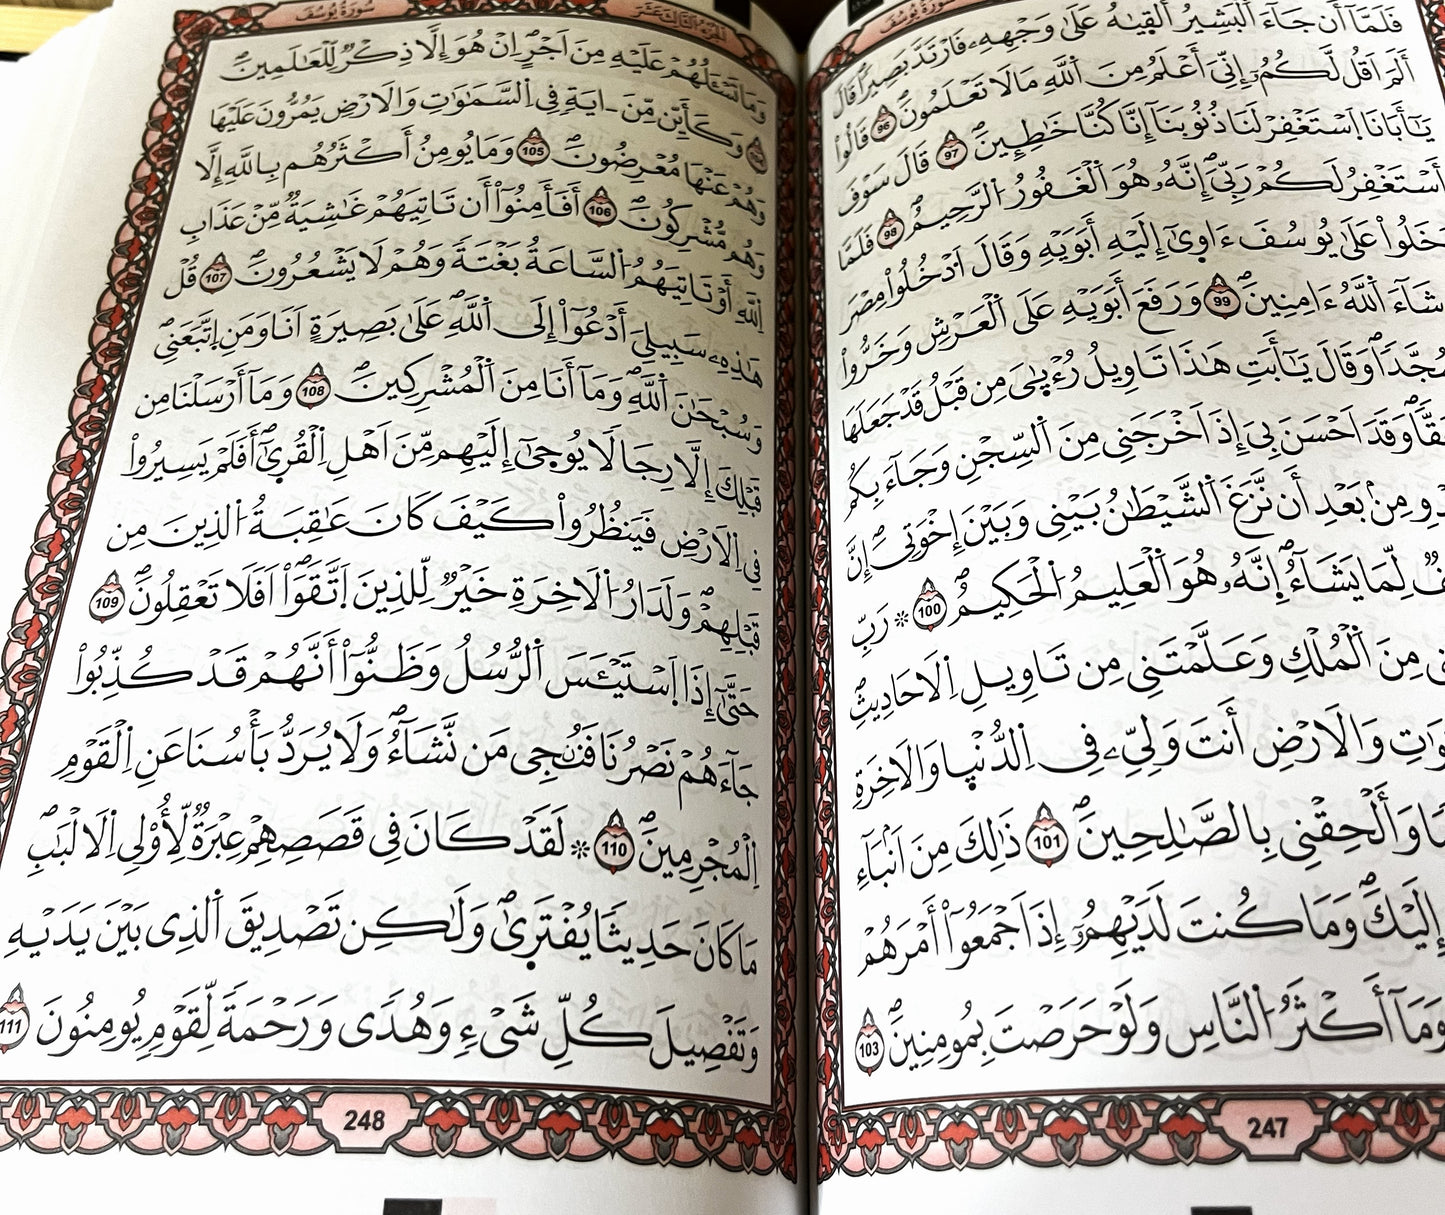 سُورَةُ يُوسُفَ
فَلَمَّآ أَن جَآءَ اَ۬لْبَشِيرُ أَلْق۪يٰهُ عَلَىٰ وَجْهِهِۦ فَارْتَدَّ بَصِيراٗۖ قَالَ
أَلَمَ اَقُل لَّكُمُۥٓ إِنِّيَ أَعْلَمُ مِنَ اَ۬للَّهِ مَا لَا تَعْلَمُونَۖ 96 قَالُوا۟
يَٰٓأَبَانَا اَ۪سْتَغْفِرْ لَنَا ذُنُوبَنَآ إِنَّا كُنَّا خَٰطِـِٕينَۖ 97 قَالَ سَوْفَ
أَسْتَغْفِرُ لَكُمْ رَبِّيَۖ إِنَّهُۥ هُوَ اَ۬لْغَفُورُ اُ۬لرَّحِيمُۖ 98 فَلَمَّا
دَخَلُوا۟ عَلَىٰ يُوسُفَ ءَاو۪يٰٓ إِلَيْهِ أَبَوَيْهِ وَقَالَ اَ۟دْخُلُوا۟ مِصْرَ
شَآءَ اَ۬للَّهُ ءَامِنِينَۖ 99 وَرَفَعَ أَبَوَيْهِ عَلَى اَ۬لْعَرْشِ وَخَرُّوا۟
سُجَّداٗۖ وَقَالَ يَٰٓأَبَتِ هَٰذَا تَاوِيلُ رُءْيٰ۪يَ مِن قَبْلُ قَدْ جَعَلَهَا
حَقّاٗۖ وَقَدَ اَحْسَنَ بِيَ إِذَ اَخْرَجَنِي مِنَ اَ۬لسِّجْنِ وَجَآءَ بِكُم
مِنۢ بَعْدِ أَن نَّزَغَ اَ۬لشَّيْطَٰنُ بَيْنِي وَبَيْنَ إِخْوَتِيَۖ إِنَّ
لِّمَا يَشَآءُۖ إِنَّهُۥ هُوَ اَ۬لْعَلِيمُ اُ۬لْحَكِيمُۖ 100 ۞ رَبِّ
مِنَ اَ۬لْمُلْكِ وَعَلَّمْتَنِي مِن تَاوِيلِ اِ۬لَاحَادِيثِۖ
وَالَارْضِ أَنتَ وَلِيِّۦ فِي اِ۬لدُّنْي۪ا وَالَاخِرَةِ
وَأَلْحِقْنِي بِالصَّٰلِحِينَۖ 101 ذَٰلِكَ مِنَ اَنۢبَآءِ
إِلَيْكَۖ وَمَا كُنتَ لَدَيْهِمُۥٓ إِذَ اَجْمَعُوٓا۟ أَمْرَهُمْ
وَمَآ أَكْثَرُ اُ۬لنَّاسِ وَلَوْ حَرَصْتَ بِمُومِنِينَۖ 103
247
سُورَةُ يُوسُفَ
وَمَا تَسْـَٔلُهُمْ عَلَيْهِ مِنَ اَجْرٍۖ اِنْ هُوَ إِلَّا ذِكْرٞ لِّلْعَٰلَمِينَۖ
وَكَأَيِّن مِّنَ اٰيَةٖ فِي اِ۬لسَّمَٰوَٰتِ وَالَارْضِ يَمُرُّونَ عَلَيْهَا
وَهُمْ عَنْهَا مُعْرِضُونَۖ 105 وَمَا يُومِنُ أَكْثَرُهُم بِاللَّهِ إِلَّا
وَهُم مُّشْرِكُونَۖ 106 أَفَأَمِنُوٓا۟ أَن تَاتِيَهُمْ غَٰشِيَةٞ مِّنْ عَذَابِ
اِ۬للَّهِ أَوْ تَاتِيَهُمُ اُ۬لسَّاعَةُ بَغْتَةٗ وَهُمْ لَا يَشْعُرُونَۖ 107 قُلْ
هَٰذِهِۦ سَبِيلِيَ أَدْعُوٓا۟ إِلَى اَ۬للَّهِۖ عَلَىٰ بَصِيرَةٍ اَنَا وَمَنِ اِ۪تَّبَعَنِيۖ
وَسُبْحَٰنَ اَ۬للَّهِۖ وَمَآ أَنَا مِنَ اَ۬لْمُشْرِكِينَۖ 108 وَمَآ أَرْسَلْنَا مِن
قَبْلِكَ إِلَّا رِجَالاٗ يُوح۪يٰٓ إِلَيْهِم مِّنَ اَهْلِ اِ۬لْقُر۪يٰٓۖ أَفَلَمْ يَسِيرُوا۟
فِي اِ۬لَارْضِ فَيَنظُرُوا۟ كَيْفَ كَانَ عَٰقِبَةُ اُ۬لذِينَ مِن
قَبْلِهِمْۖ وَلَدَارُ اُ۬لَاخِرَةِ خَيْرٞ لِّلذِينَ اَ۪تَّقَوَاْۖ اَفَلَا تَعْقِلُونَۖ 109
حَتَّىٰٓ إِذَا اَ۪سْتَيْـَٔسَ اَ۬لرُّسُلُ وَظَنُّوٓا۟ أَنَّهُمْ قَدْ كُذِّبُوا۟
جَآءَهُمْ نَصْرُنَا فَنُنجِي مَن نَّشَآءُۖ وَلَا يُرَدُّ بَأْسُنَا عَنِ اِ۬لْقَوْمِ
اِ۬لْمُجْرِمِينَۖ 110 ۞ لَقَدْ كَانَ فِي قَصَصِهِمْ عِبْرَةٞ لِّأُوْلِي اِ۬لَالْبَٰبِۖ
مَا كَانَ حَدِيثاٗ يُفْتَر۪يٰۖ وَلَٰكِن تَصْدِيقَ اَ۬لذِي بَيْنَ يَدَيْهِ
وَتَفْصِيلَ كُلِّ شَيْءٖ وَهُدىٗ وَرَحْمَةٗ لِّقَوْمٖ يُومِنُونَۖ 111
248